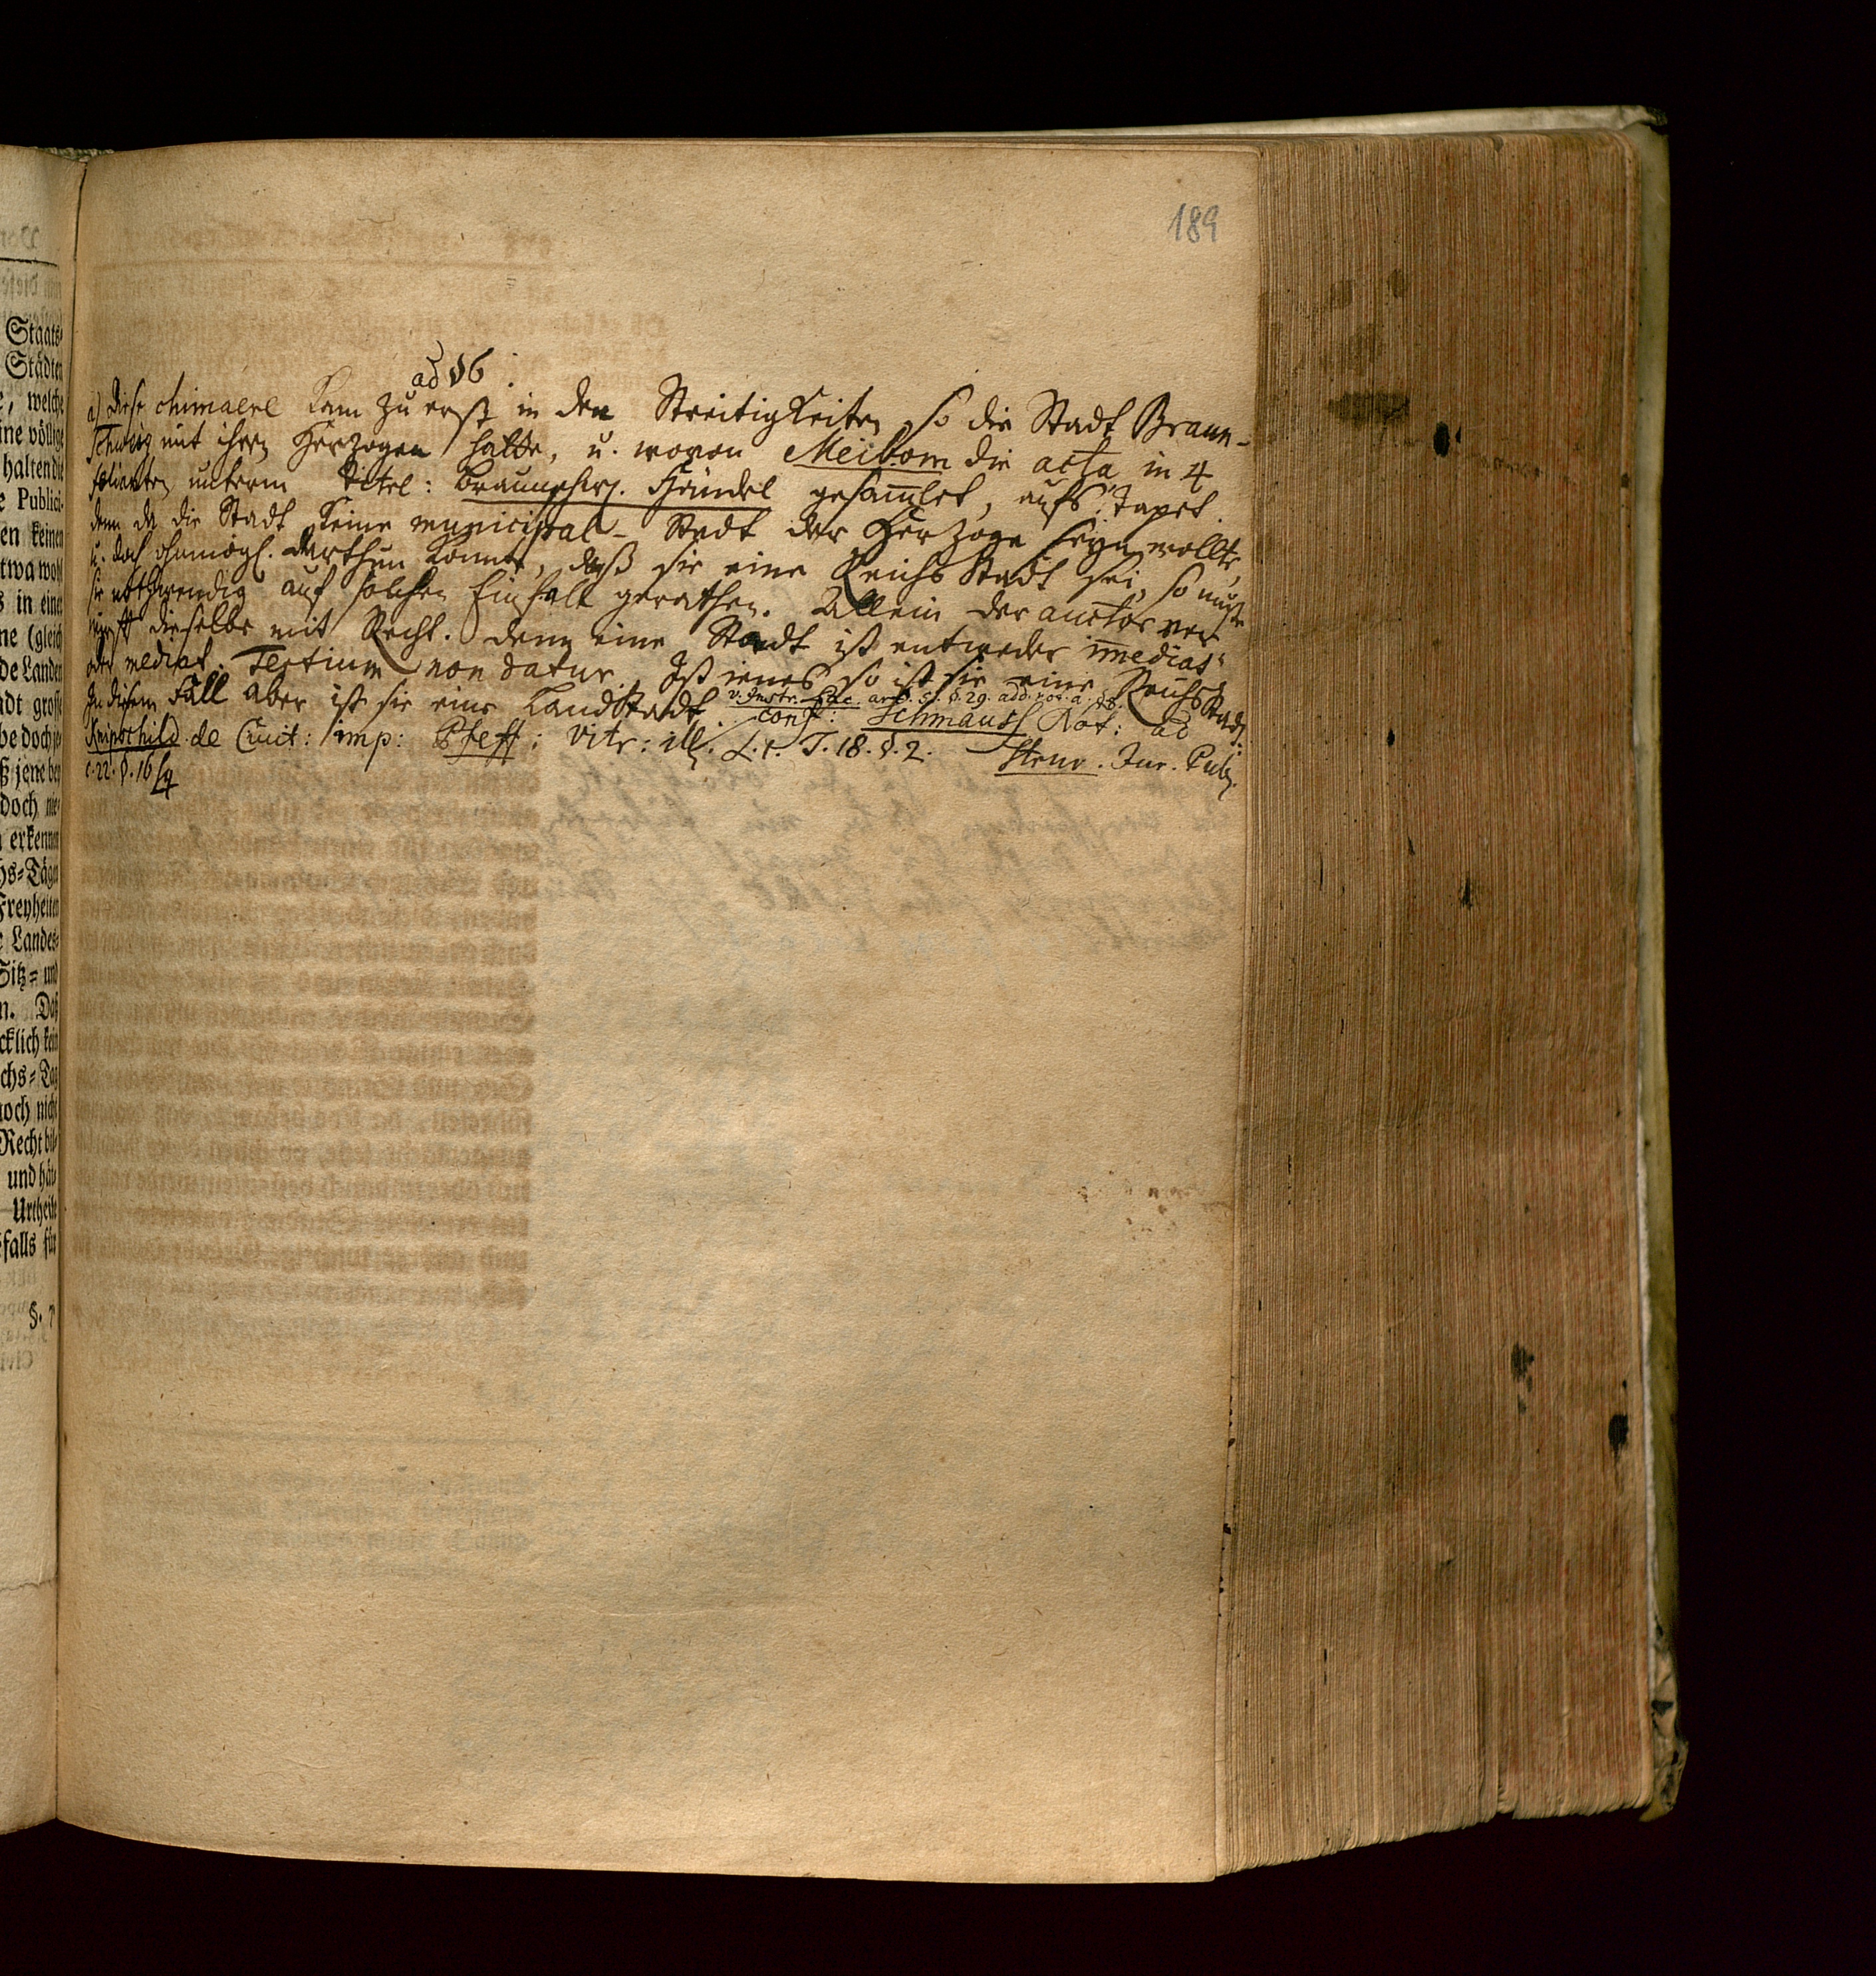 189
ad §6.
a) Diese chimaere kam zu erst in den Streitigkeiten so die Stadt Braun-
schweig mit ihren Herzogen hatte, u. wovon Meibom die acta in 4
folianten unterm Titel: Braunschw. Händel gesamlet, aufs Tapet.
denn da die Stadt keine municipal-Stadt der Herzoge seyn wollte,
u. doch ohnmögl. darthun konnte, daß sie eine Reichs Stadt sei, so muste
sie nothwendig auf solchen Einfall gerathen. Allein der auctor ver
wirft dieselbe mit Recht. denn eine Stadt ist entweder immediat
oder mediat. Tertium non datur. Ist jenes so ist sie eine Reichs Stadt
In diesem Fall aber ist sie eine LandStadt. v. Instr. Pac. art. 5. §. 29. add. not. a.
conf: Schmauss Not: ad
Knipschild de Civit: imp: Pfeff: Vitr: ill. L. 1. T. 18. §. 2. Struv. Jur. Publ.
c. 22. §. 16 sq
Staats-
Städten
, welche
ine völlige
halten die
e Publici-
en keinen
twa wohl
s in einer
ne (gleich
de Landen
adt grosse
be doch
ß jene bey
doch nie-
erkennen
hs-Tägen
Freyheiten
Landes-
Sitz- und
n. Daß
cklich kein
chs-Tag
noch nicht
Recht
und hät-
Urtheile
falls für
§. 7